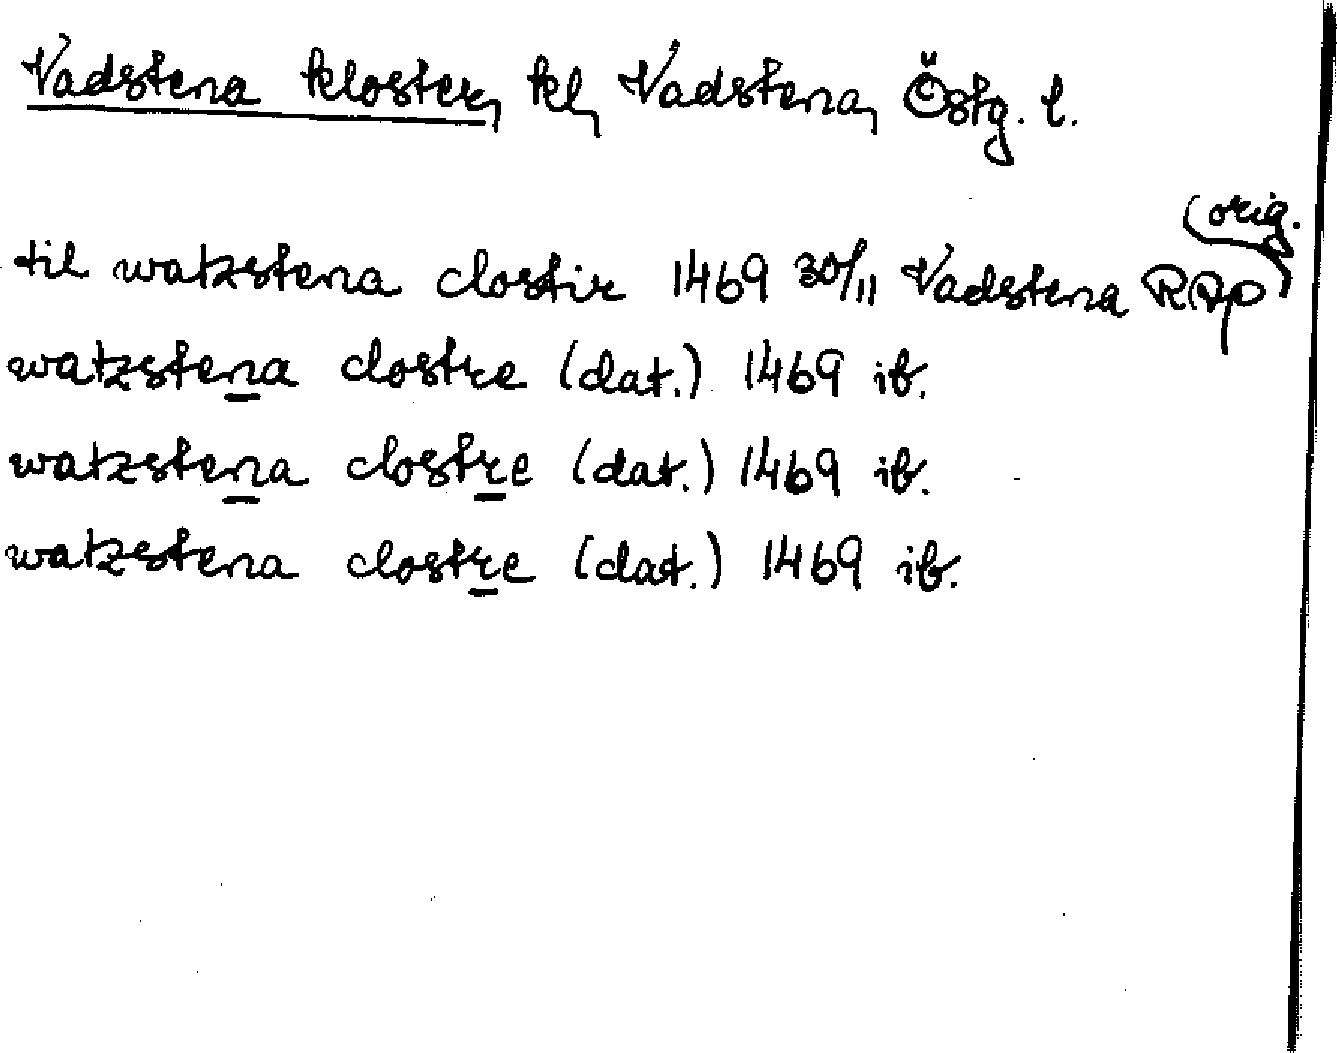 Vadstena kloster, kl, Vadstena, Östg. l.
til watzstena clostir 1469 30/11 Vadstena RAp (orig.)
watzstena clostre (dat.) 1469 ib.
watzstena clostre (dat.) 1469 ib.
watzstena clostre (dat.) 1469 ib.